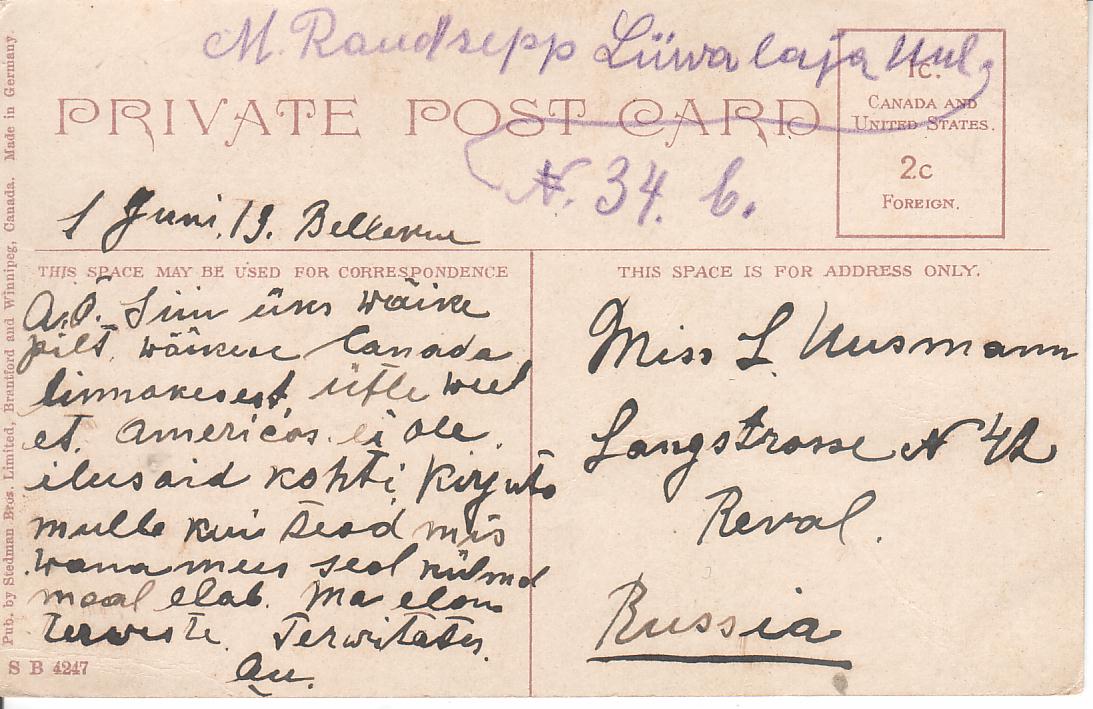 M. Raudsepp Liiwalaja uul.
N. 34. 6.
PRIVATE POST CARD
1c.
CANADA AND
UNITED STATES.
2c
FOREIGN.
1 Juni, 13. Bellevue
THIS SPACE MAY BE USED FOR CORRESPONDENCE
A.Õ. Siin üks wäike
pilt, wäikese Canada
linnakesest, ütle weel
et. Americas. ei ole
ilusaid kohti, Kirjuta
mulle kui tead mis
wana mees seal külmal
maal elab. Ma elan
terweste. Terwitates.
Au.
THIS SPACE IS FOR ADDRESS ONLY.
Miss L. Uusmann
Langstrasse N 42
Reval.
Russia
Pub. by Stedman Bros. Limited, Brantford and Winnipeg, Canada. Made in Germany
S B 4247